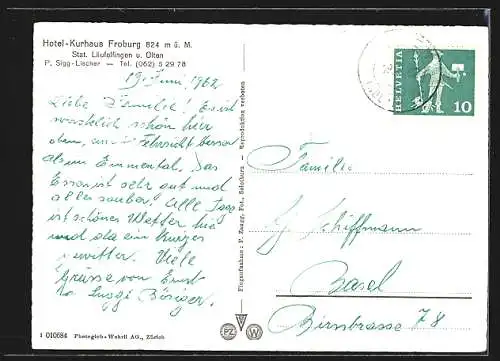 Hotel-Kurhaus Froburg 824 m ü. M.
Stat. Läufelfingen u. Olten
P. Sigg-Lischer — Tel. (062) 5 29 78
19. Juni 1962
Liebe Familie! Es ist
wirklich schön hier
oben,
als im Emmental. Das
Essen ist sehr gut und
alles sauber. Alle Tage
ist schönes Wetter hie
und da ein kurzes
Gewitter. Viele
Grüsse von Ernst
Böriger.
1 010684 Photoglob-Wehrli AG., Zürich
Fliegeraufnahme: P. Zaugg, Pot., Solothurn - Reproduktion verboten
PZ W
HELVETIA
10
Familie
Schiffmann
Basel
Birsstrasse 78